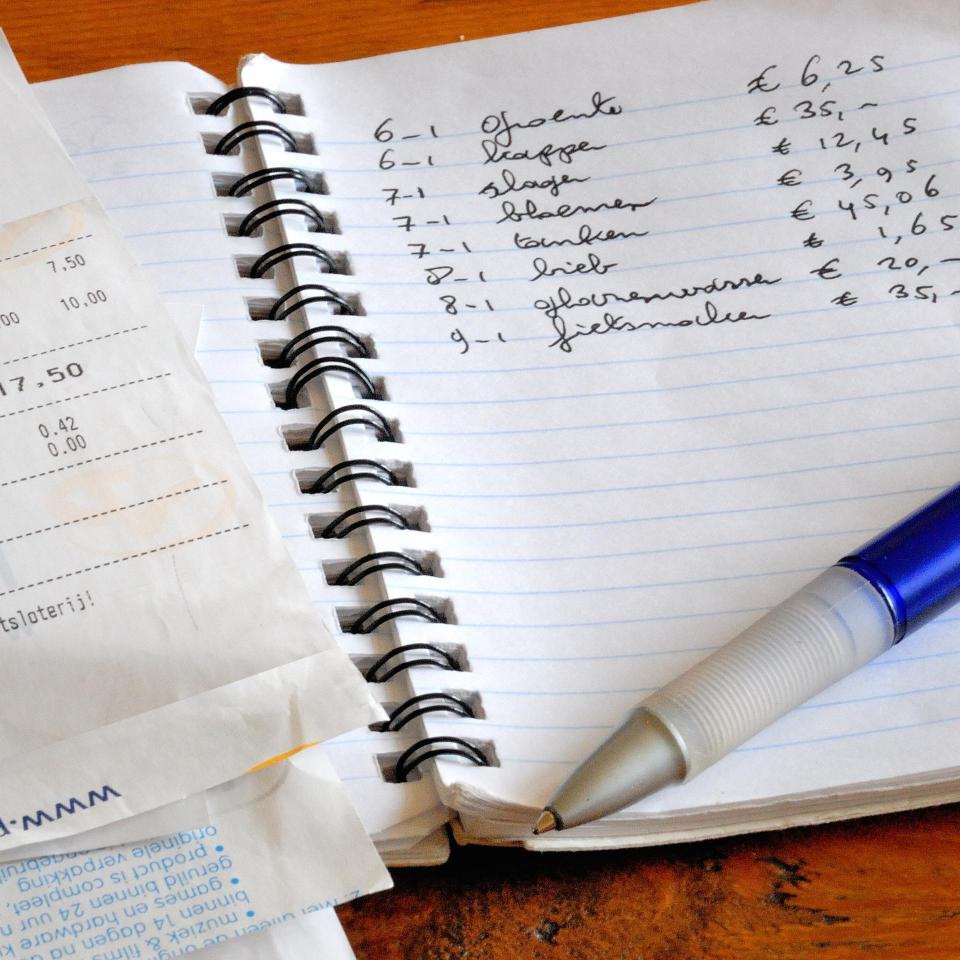 7,50
00 10,00
17.50
0.42
0.00
tsloterij!
www.
6-1 groente € 6,25
6-1 kapper € 35,-
7-1 slager € 12,45
7-1 bloemen € 3,95
7-1 tanken € 45,06
8-1 bieb € 1,65
8-1 glazenwasser € 20,-
9-1 fietsmaken € 35,-
muziek & films
binnen 14 dagen na
games en hardware
geruild binnen 24 uur
• product is compleet
originele verpakking